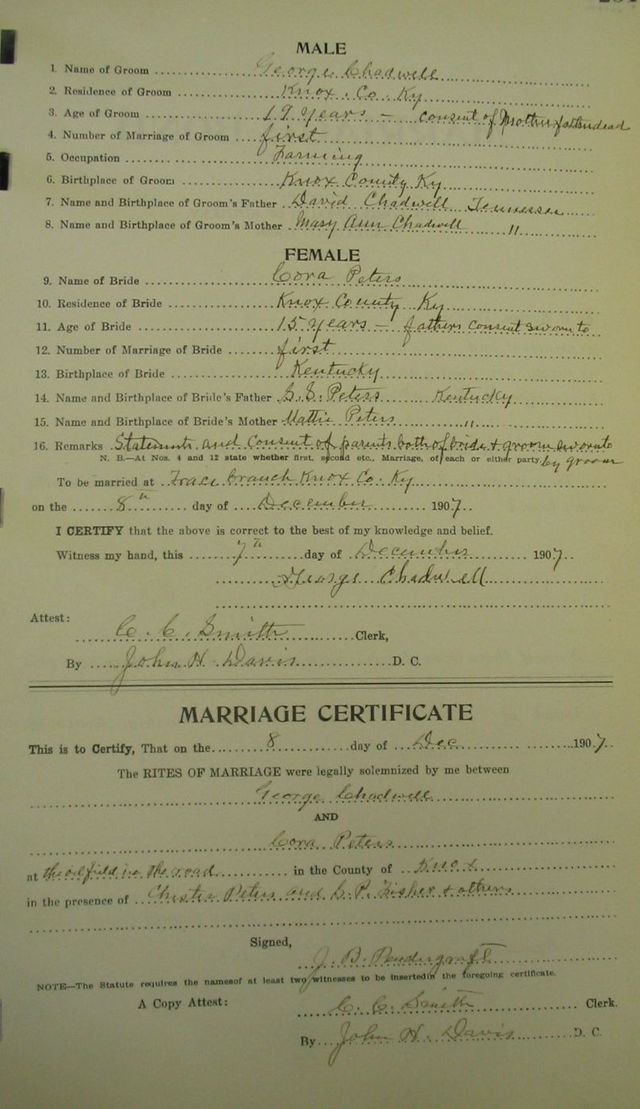 MALE
1. Name of Groom George Chadwell
2. Residence of Groom Knox Co. Ky
3. Age of Groom 19 years – consent of Mother father dead
4. Number of Marriage of Groom first
5. Occupation Farming
6. Birthplace of Groom Knox County Ky
7. Name and Birthplace of Groom's Father David Chadwell Tennessee
8. Name and Birthplace of Groom's Mother Mary Ann Chadwell "
FEMALE
9. Name of Bride Cora Peters
10. Residence of Bride Knox County Ky
11. Age of Bride 15 years – fathers consent sworn to
12. Number of Marriage of Bride first
13. Birthplace of Bride Kentucky
14. Name and Birthplace of Bride's Father Peters Kentucky
15. Name and Birthplace of Bride's Mother Mattie Peters "
16. Remarks Statements and Consent of parents both of bride & groom sworn to
N. B.—At Nos. 4 and 12 state whether first, second etc., Marriage, of each or either party. by groom
To be married at branch Knox Co. Ky
on the 8th day of December 1907
I CERTIFY that the above is correct to the best of my knowledge and belief.
Witness my hand, this 7th day of December 1907
George Chadwell
Attest:
C. C. Smith Clerk,
By John H. Davis D. C.
MARRIAGE CERTIFICATE
This is to Certify, That on the 8 day of Dec 1907
The RITES OF MARRIAGE were legally solemnized by me between
George Chadwell
AND
Cora Peters
at the oilfield in the road in the County of Knox
in the presence of Peters and Fisher & others
Signed,
J. B.
NOTE—The Statute requires the names of at least two witnesses to be inserted in the foregoing certificate.
A Copy Attest: C. C. Smith Clerk.
By John H. Davis D. C.